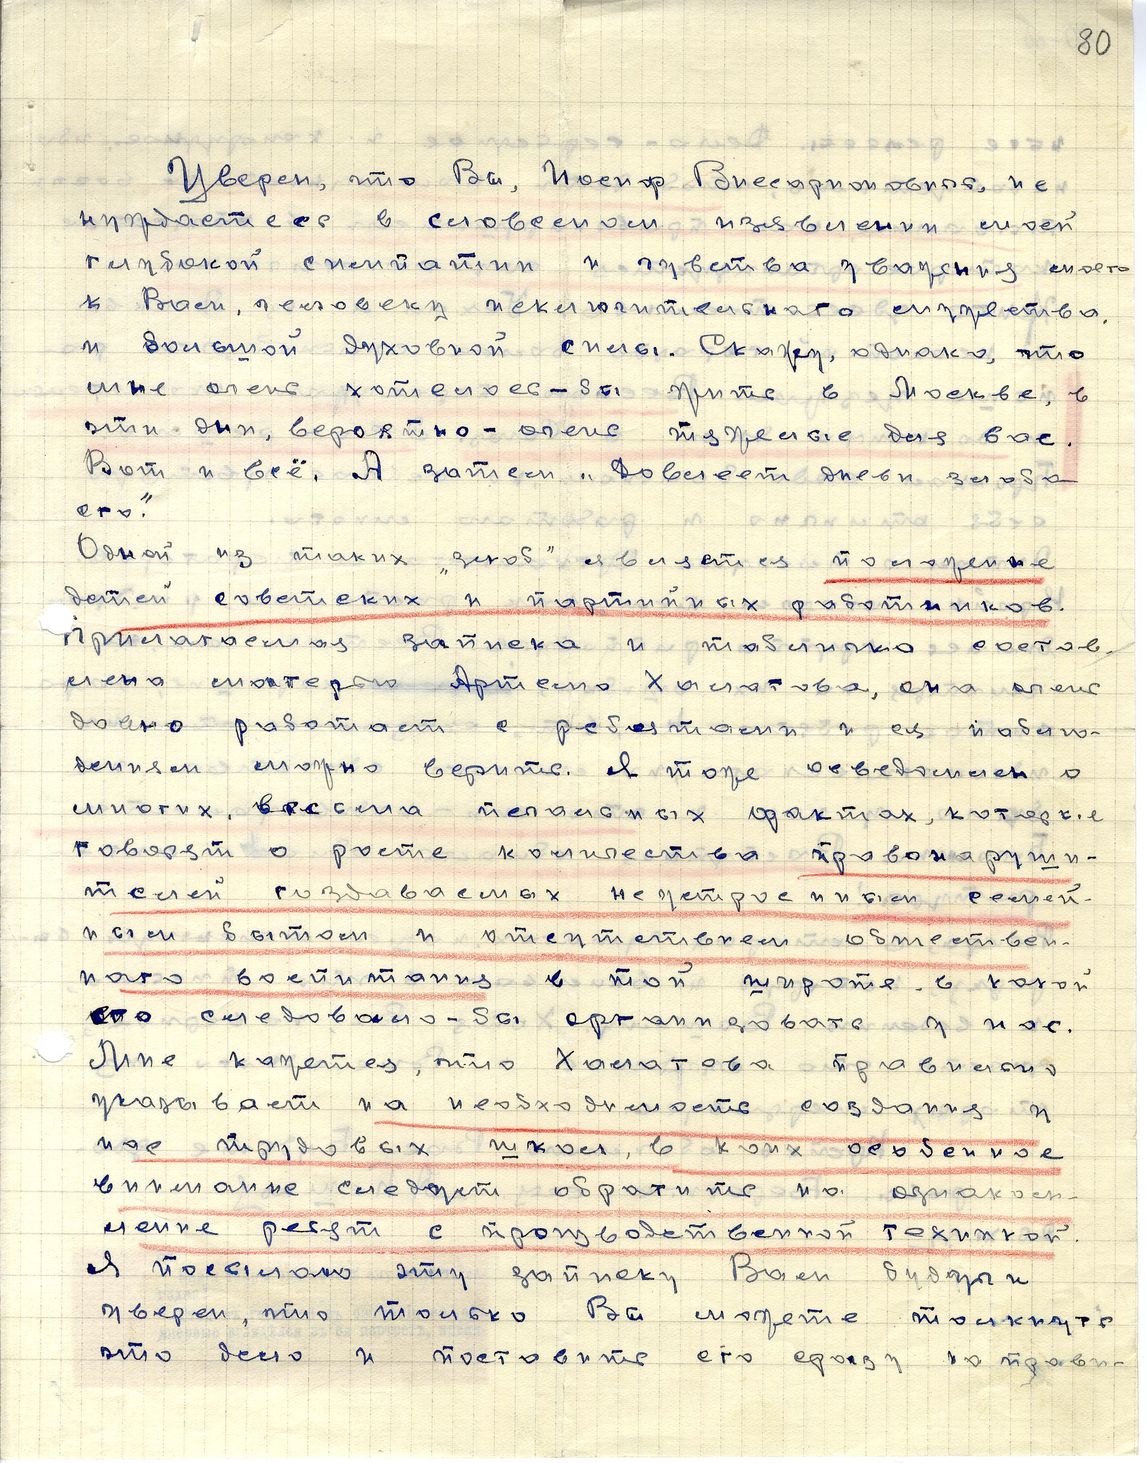 80
Уверен, что Вы, Иосиф Виссарионович, не
нуждаетесь в словесном изъявлении моей
глубокой симпатии и чувства уважения моего
к Вам, человеку исключительного мужества,
и большой духовной силы. Скажу, однако, что
мне очень хотелось-бы жить в Москве, в
эти дни, вероятно - очень тяжелые для вас.
Вот и всё. А затем „Довлеет дневи злоба
его".
Одной из таких „злоб" является положение
детей советских и партийных работников.
Прилагаемая записка и табличка состав-
лена матерью Артема Халатова, она очень
давно работает с ребятами и ея наблю-
дениям можно верить. Я тоже осведомлен о
многих, весьма печальных фактах, которые
говорят о росте количества правонаруши-
телей создаваемых неустроенным семей-
ным бытом и отсутствием обществен-
наго воспитания в той широте, в какой
его следовало-бы организовать у нас.
Мне кажется, что Халатова правильно
указывает на необходимость создания у
нас трудовых школ, в коих особенное
внимание следует обратить на ознаком-
ление ребят с производственной техникой.
Я посылаю эту записку Вам будучи
уверен, что только Вы можете толкнуть
это дело и поставить его сразу на прави-